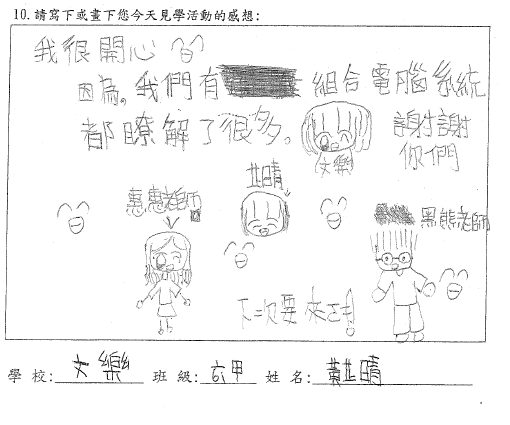 10.請寫下或畫下您今天見學活動的感想:
我很開心
因為。我們有 組合電腦系統
都瞭解了很多。
謝謝你們
文樂
惠惠老師
芷晴
黑熊老師
下次要來
學校: 文樂 班級: 六甲 姓名: 黃芷晴